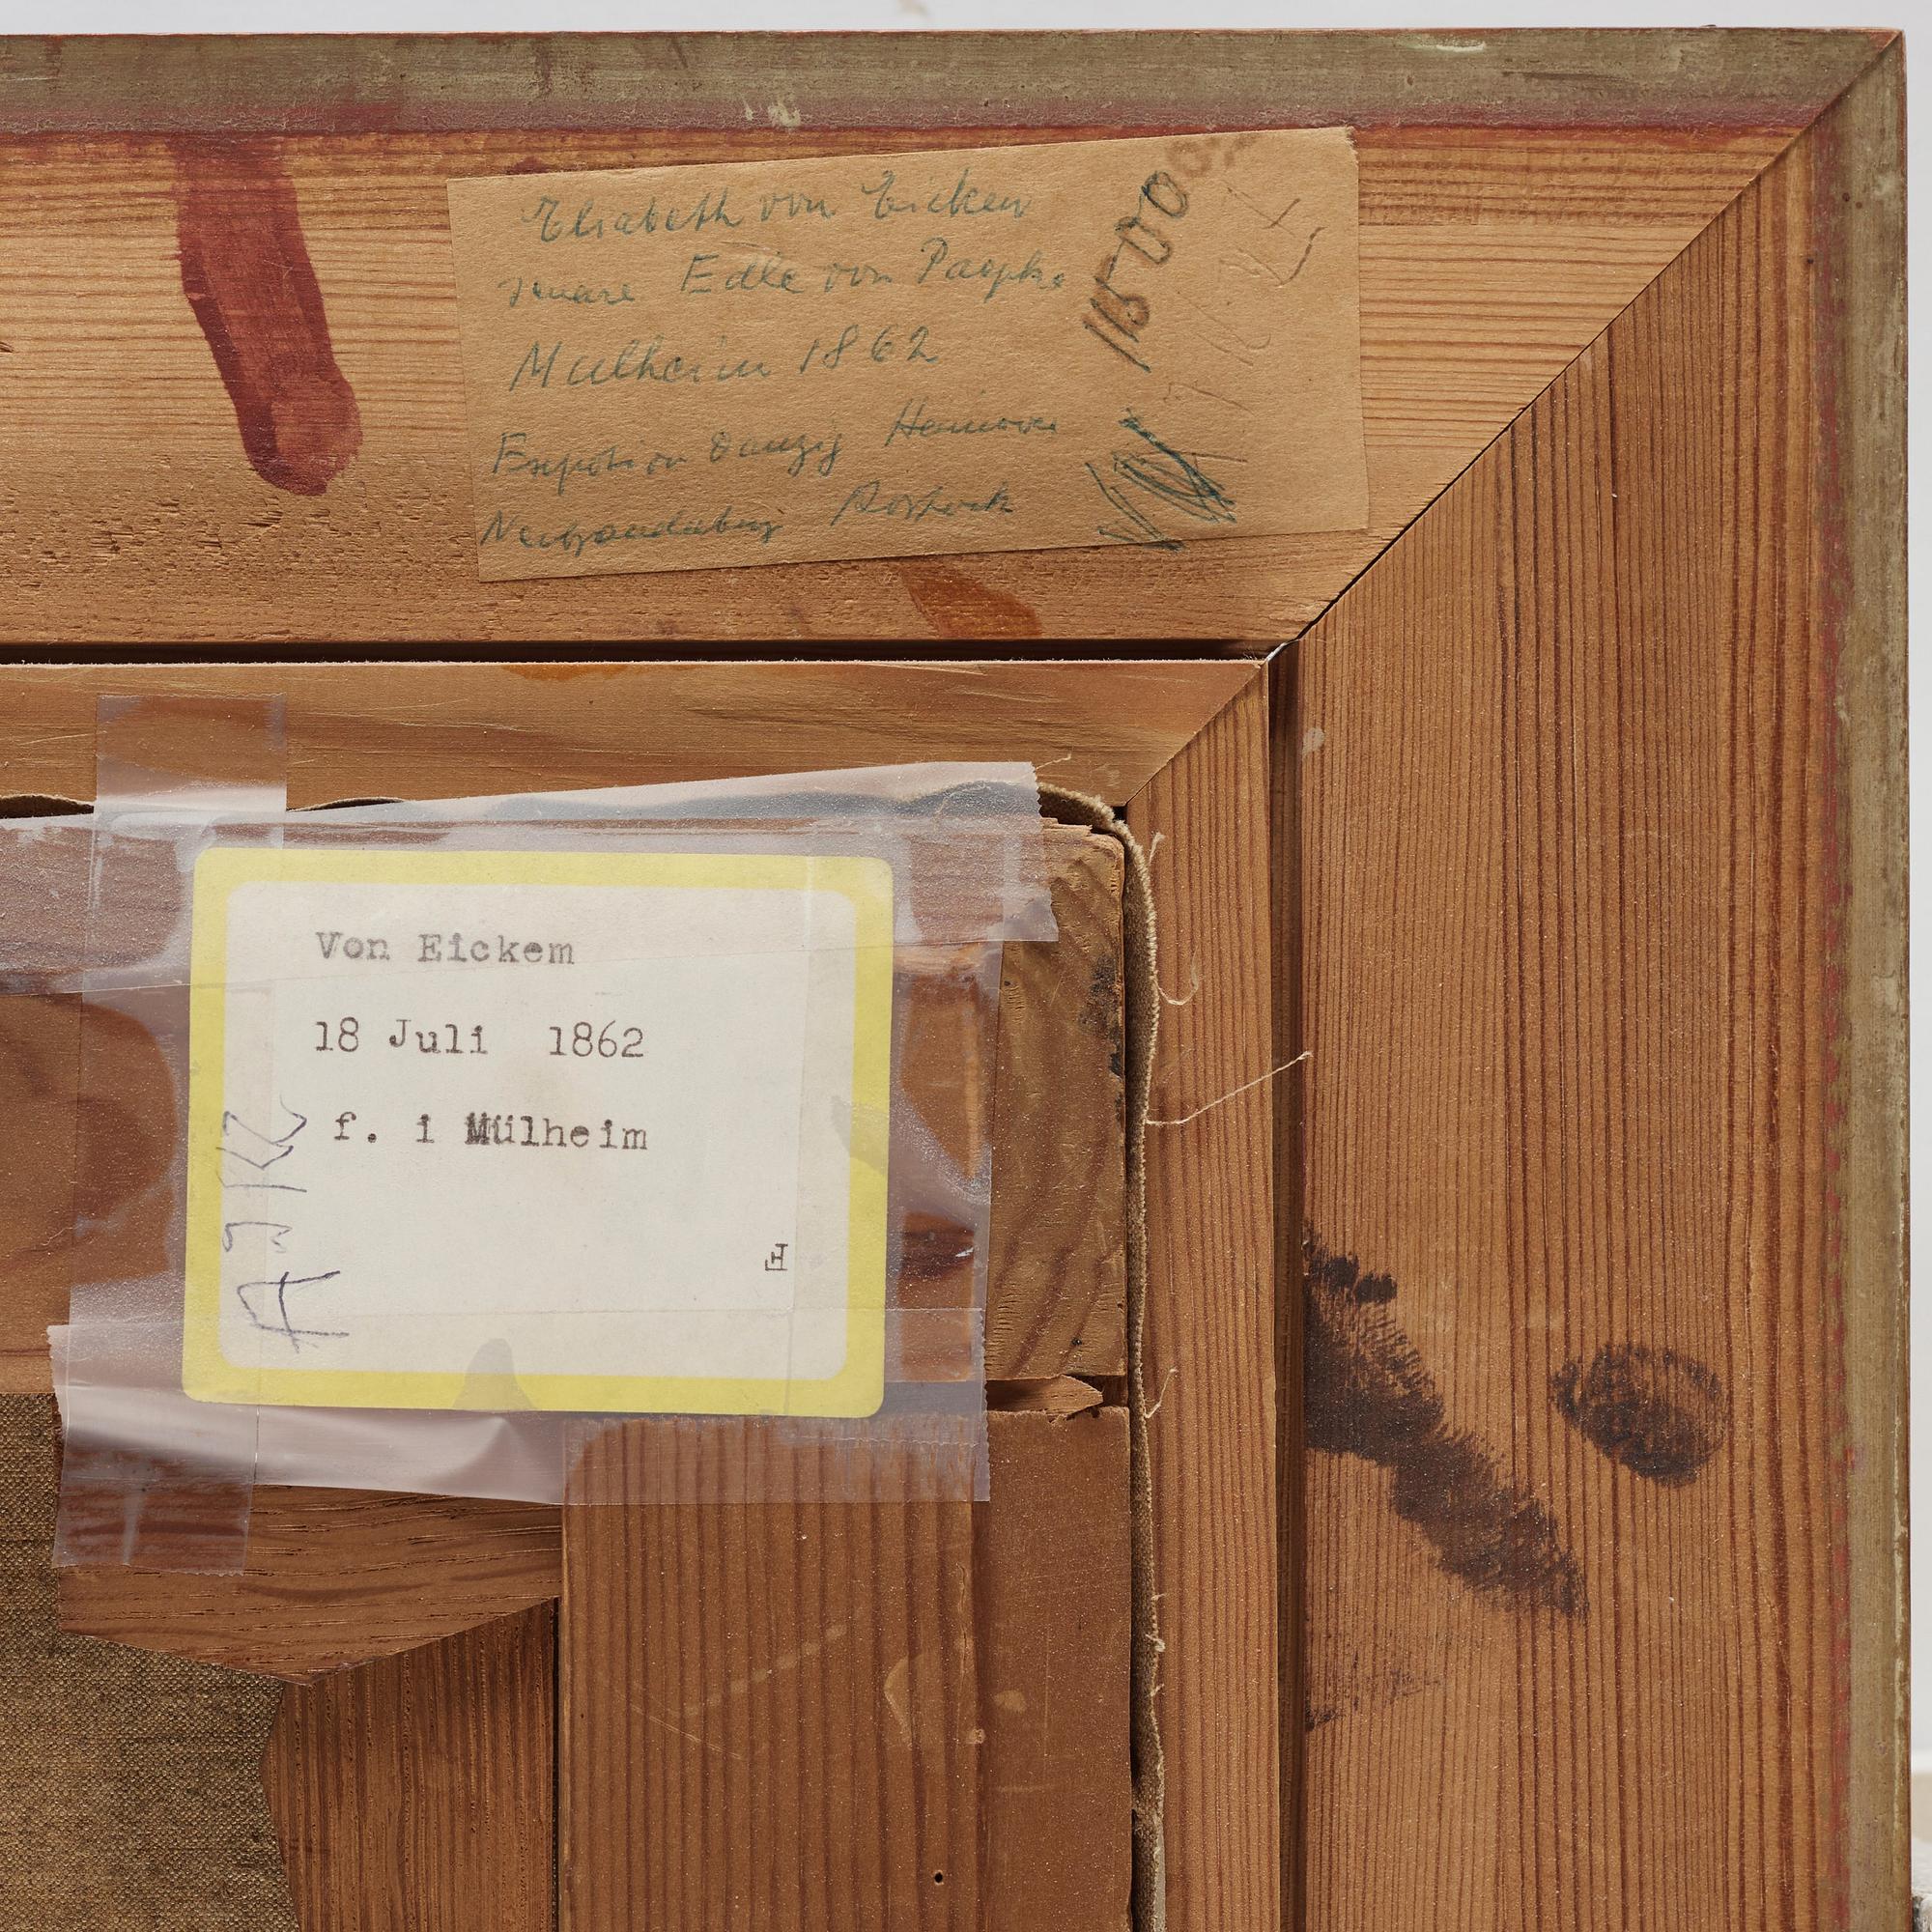 Elisabeth von Eicken
senare Edle von Paepke
Mulheim 1862
Danzig Hannover
Neubrandeburg Rostock
Von Eickem
18 Juli 1862
f. i Mülheim